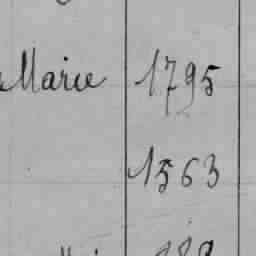 Marie 1795
1563